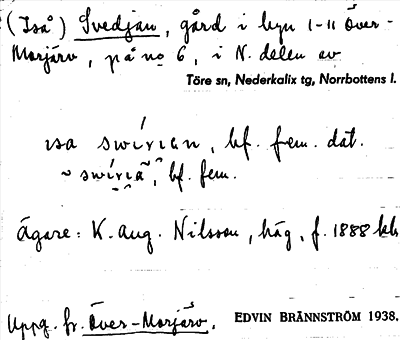 (Iså) Svedjan, gård i byn 1-11 Över-
Morjärv, på no 6, i N. delen av
Töre sn, Nederkalix tg, Norrbottens l.
isa swírian, bf. fem. dat.
~ swíriã, bf. fem.
Ägare: K. Aug. Nilsson, häg, f. 1888
Uppg. fr. Över-Morjärv.
EDVIN BRÄNNSTRÖM 1938.